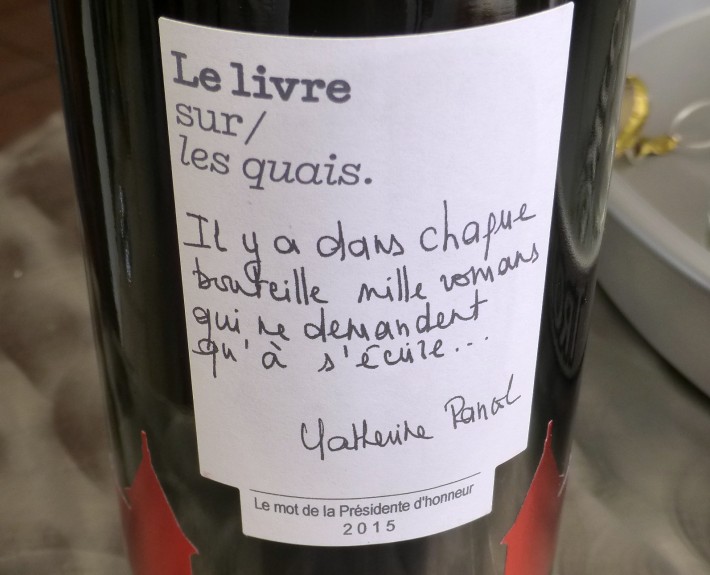 Le livre
sur/
les quais.
Il y a dans chaque
bouteille mille romans
qui ne demandent
qu'à s'écrire...
Katherine Pancol
Le mot de la Présidente d'honneur
2015